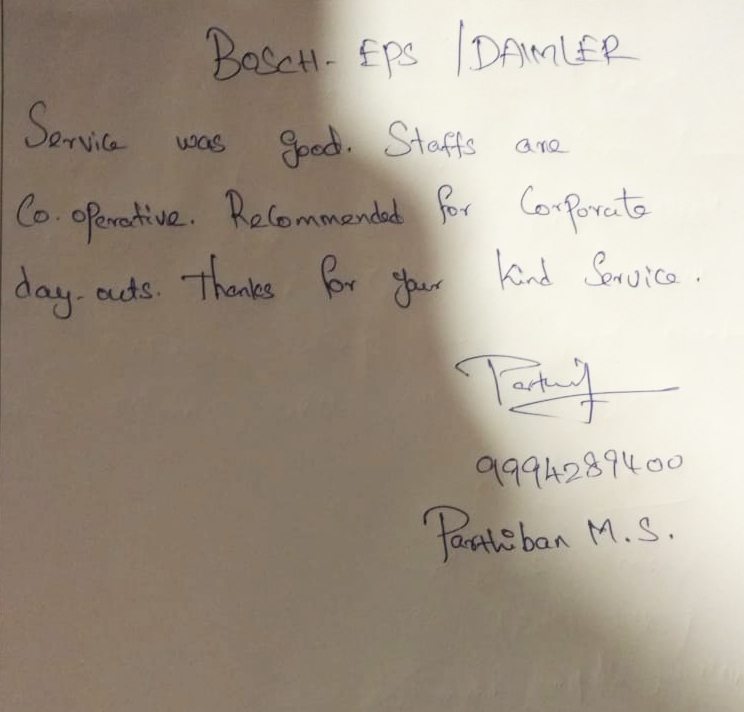 BOSCH- EPS / DAIMLER
Service was good. Staffs are
Co.operative. Recommended for Corporate
day-outs. Thanks for your kind Service.
9994289400
Parthiban M.S.